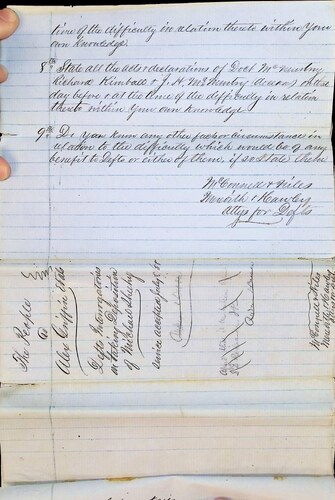 time of the difficulty in relation thereto within your
own knowledge.
8th State all the acts & declarations of Doct McNembry
Richard Kimball & J. H. McNembry deceased on the
day before & at the time of the difficulty in relation
thereto within your own knowledge
9th Do you know any other fact or circumstance in
relation to the difficulty which would be of any
benefit to Defts or either of them, if so State them
McConnell & Niles
& Hawley
Attys for Defts
The People
vs
Alex Griffin et als
Defts Interrogatories
on taking Deposition
of Michael
service accepted July
McConnell & Niles